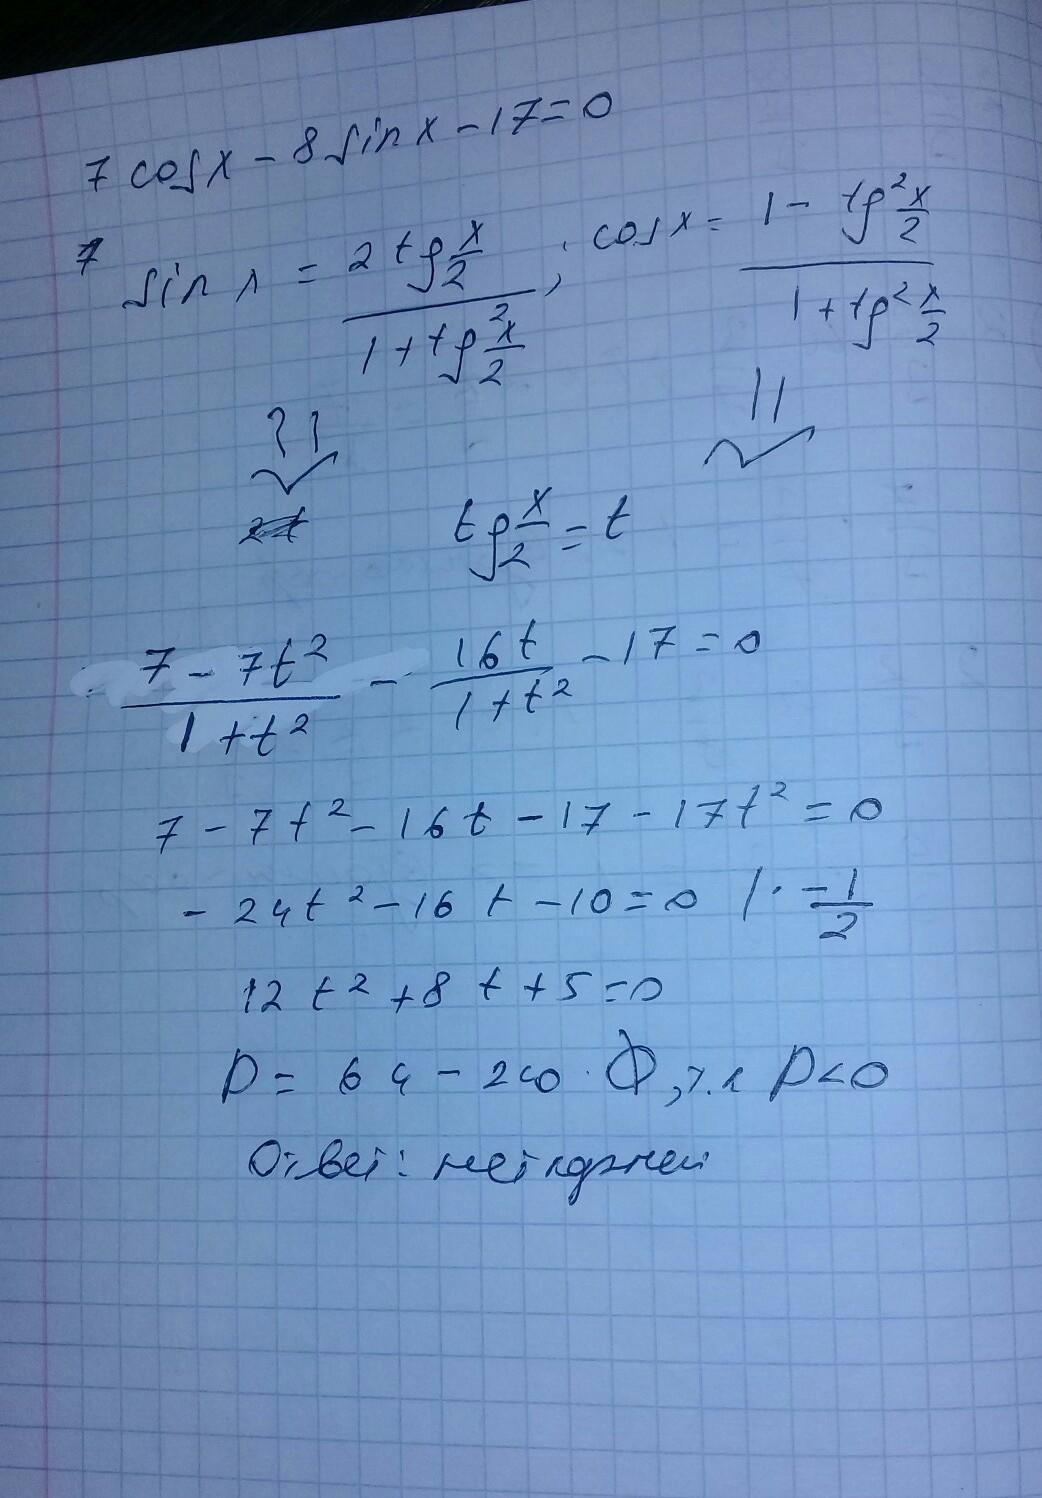 7 cos x - 8 sin x - 17 = 0
sin x = 2 tg x/2 / 1 + tg² x/2 ; cos x = 1 - tg² x/2 / 1 + tg² x/2
tg x/2 = t
7 - 7t² / 1 + t² - 16t / 1 + t² - 17 = 0
7 - 7t² - 16t - 17 - 17t² = 0
- 24t² - 16t - 10 = 0 | · - 1/2
12t² + 8t + 5 = 0
D = 64 - 240 · Ф, т.к D < 0
Ответ: нет корней